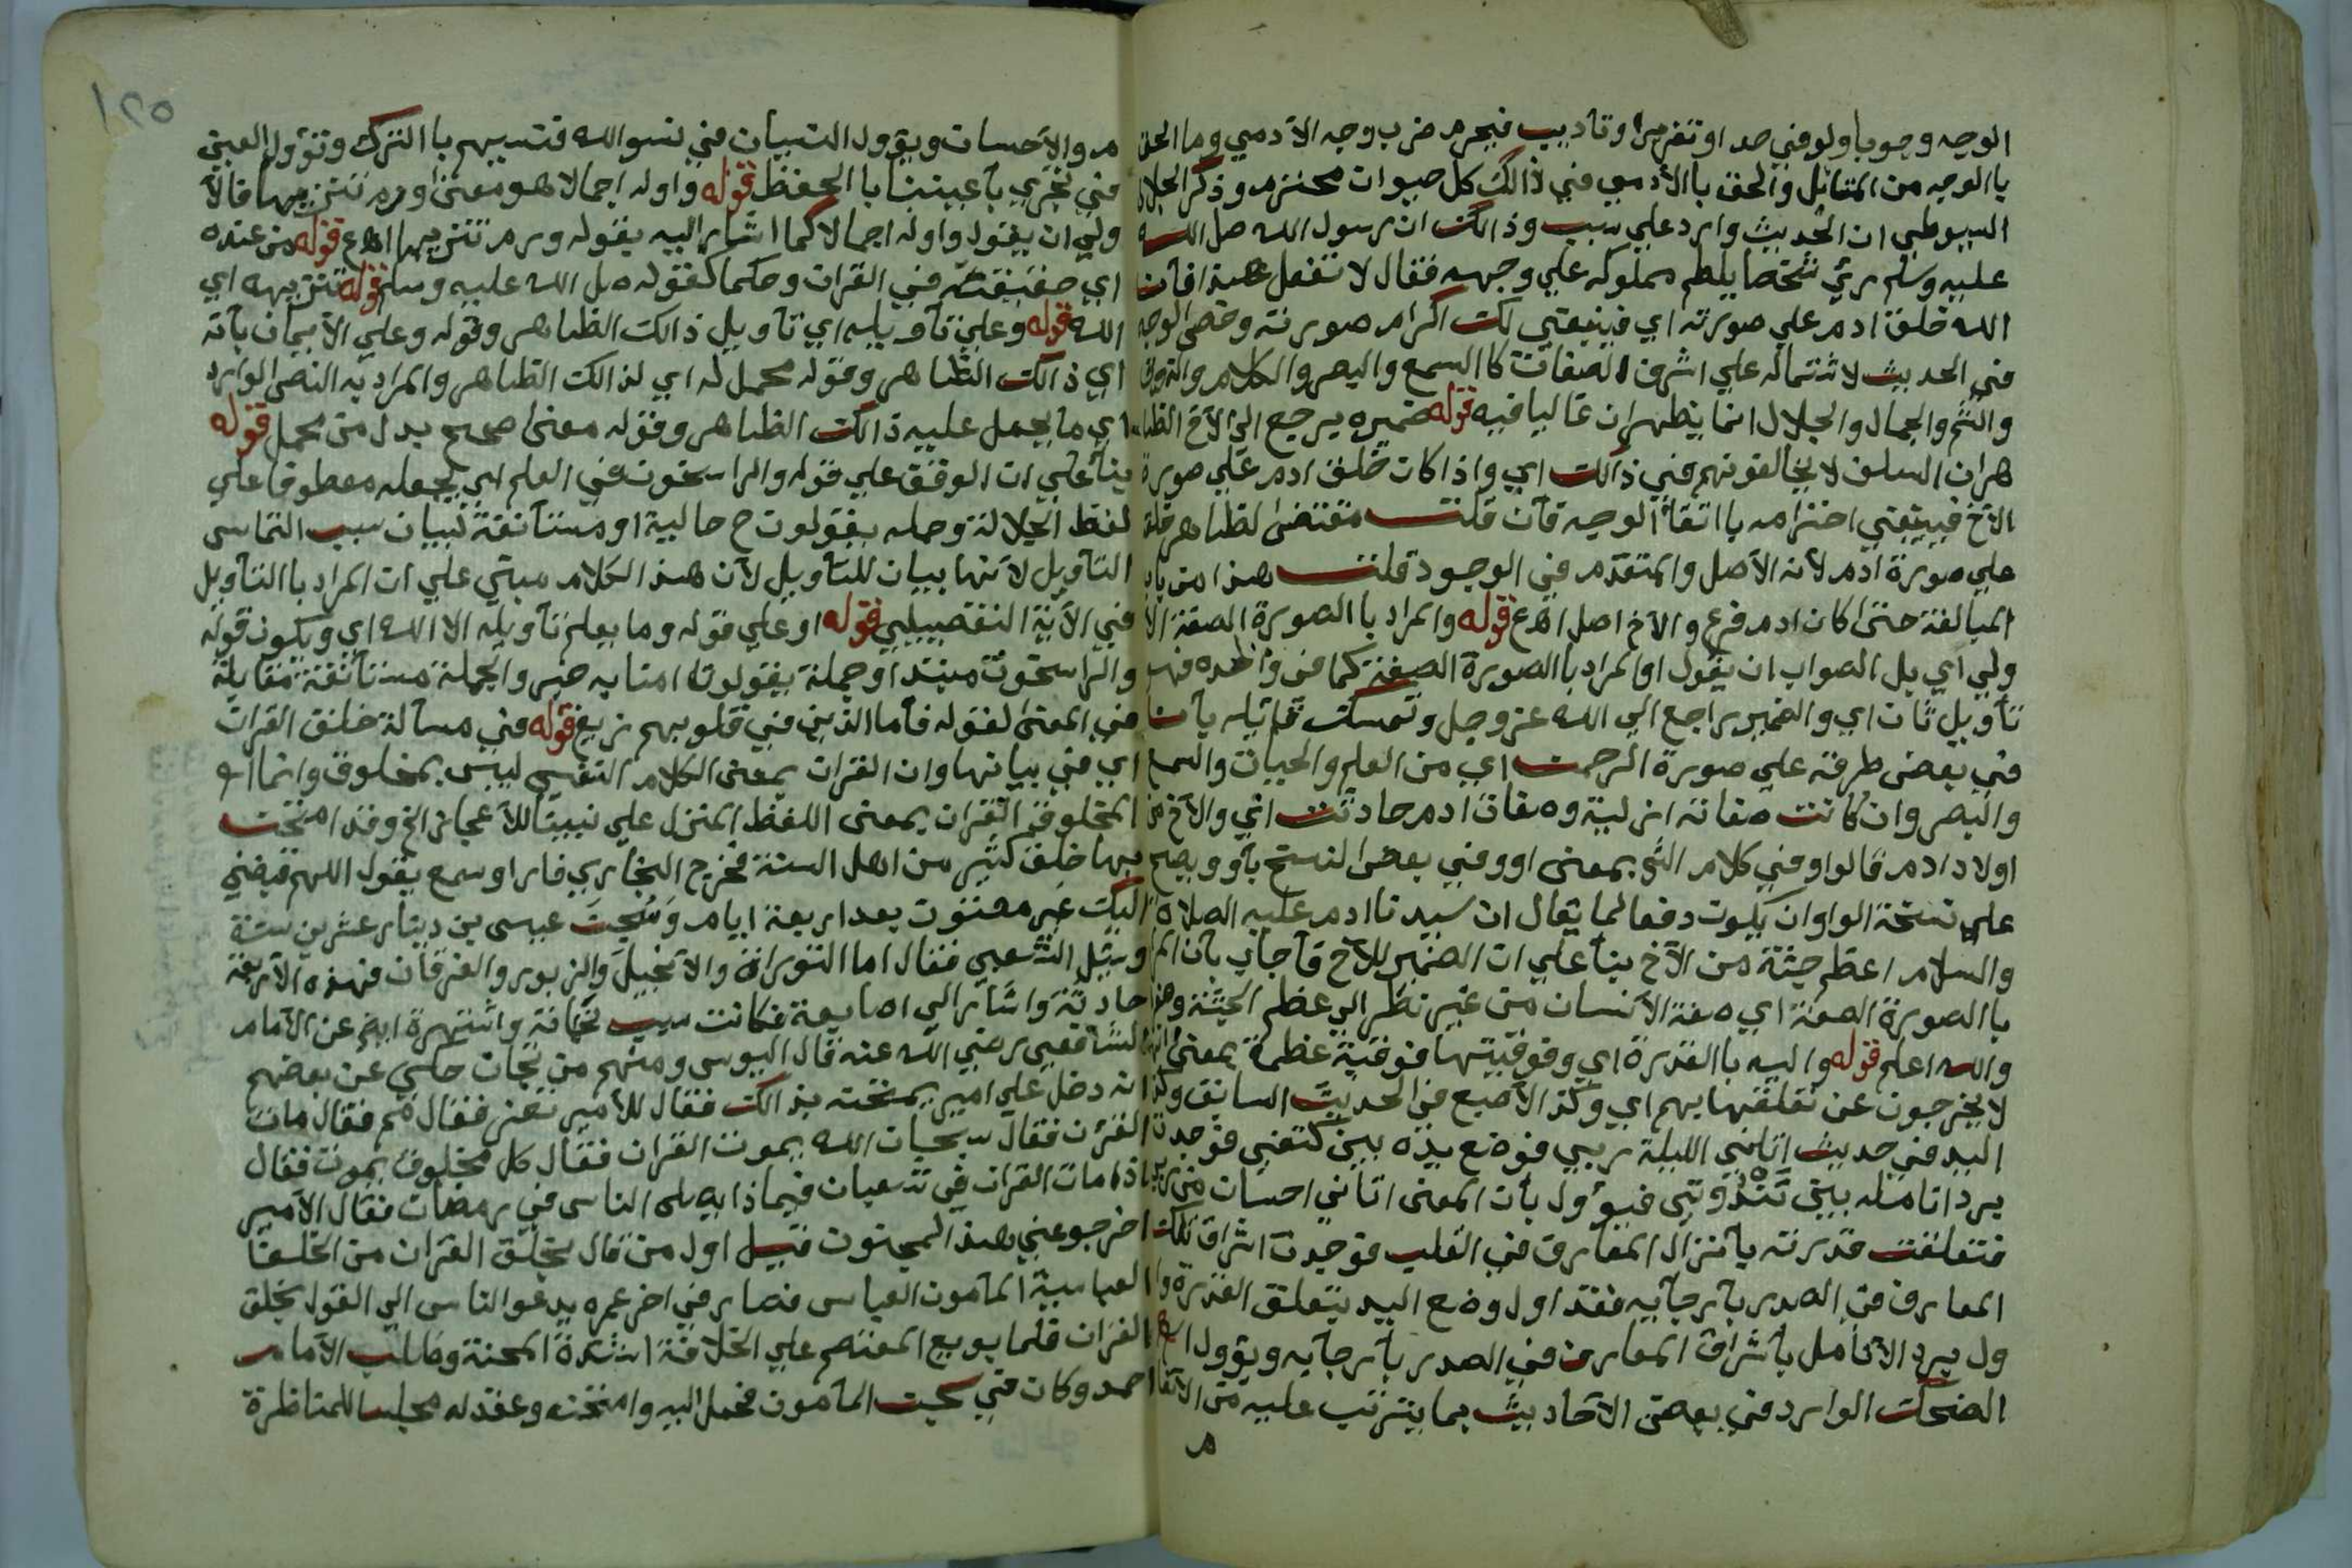 الوجه وجوبا ولو في حد او تقزيرا وتاديب فيحرم ضرب وجه الآدمي وما الحق
باالوجه من المقاتل والحق باالأدمي في ذالك كل حيوان محتزم وذكر الجلال
السيوطي ان الحديث وارد علي سبب وذالك ان رسول الله صل الله
عليه وسلم رئي شخصا يلطم مملوكه علي وجهه فقال لا تفعل هذا فآن
الله خلق ادم علي صورته اي فينبغي لك اكرام صورته وخص الوجه
في الحديث لاشتماله علي اشرف الصفات كاالسمع والبصر والكلام والذوق
والشم والجمال والجلال انما يظهران غالبا فيه قوله ضميره يرجع الي الآخ الظا
هران السلف لا يخالفونهم في ذالك اي واذا كان خلق ادم علي صورة
الآخ فينبغي احترامه بااتقآ الوجه فآن قلت مقتضى لظاهر خلق
علي صورة ادم لأنه الأصل والمتقدم في الوجود قلت هذا من باب
المبالغة حتى كان ادم فرع والآخ اصل اهـ ع قوله والمراد باالصورة الصفة الا
ولي اي بل الصواب ان يقول او المراد باالصورة الصفة كما في واحده فهو
تآويل ثان اي والضمير راجع الي الله عز وجل وتمسك قايله بآن
في بعض طرقه علي صورة الرحمن اي من العلم والحيات والسمع
والبصر وان كانت صفاته ازلية وصفات ادم حادثت اني والآخ من
اولاد ادم قالوا وفي كلام الش بمعنى او وفي بعض النسخ بآو ويصح
علي نسخة الواو ان يكون دفعا لما يقال ان سيدنا ادم عليه الصلاة
والسلام اعظم جثة من الآخ بنآ علي ان الضمير للآخ فآجاب بآن المراد
باالصورة الصفة اي صفة الآنسان من غير نظر الي عظم الجثة وهذا
والله اعلم قوله واليه باالقدرة اي وفوقيتها فوقية عظمة بمعنى انهم
لا يخرجون عن تعلقها بهم اي وكذ الأصبع في الحديث السابق وكذا
اليد في حديث اتاني الليلة ربي فوضع يده بين كتفي فوجدت
برد انامله بين ثندوتي فيؤول بأن المعنى اتاني احسان من ربي
فتعلقت قدرته بآنزال المعارف في القلب فوجدت اشراق تلك
المعارف في الصدر بآرجآيه فقد اول وضع اليد بتعلق القدرة وا
ول برد الأنامل بآشراق المعارف في الصدر بآرجآيه ويؤول ايضا
الضحك الوارد في بعض الآحاديث بما يترتب عليه من الآنعا
م
١٢٥
م والآحسان ويؤول النسيان في نسوالله فنسيهم باالترك وتؤول العين
في تجري بآعيننا باالحفظ قوله واوله اجمالا هو معنى ورم تنزيها فالآ
ولي ان يقول واوله اجمالا كما اشار اليه بقوله ورم تنزيها اهـ ع قوله من عنده
اي حقيقته في القران وحكما كقوله صل الله عليه وسلم قوله تنزيهه اي
الله قوله وعلي تآويله اي تآويل ذالك الظاهر وقوله وعلي الآيمان بآنه
اي ذالك الظاهر وقوله محمل له اي لذالك الظاهر والمراد به النص الوارد
اي ما يحمل عليه ذالك الظاهر وقوله معنى صحيح بدل من محمل قوله
بنآ علي ان الوقف علي قوله والراسخون في العلم اي بجعله معطوفا علي
لفظ الجلالة وجمله يقولون ح حالية او مستآنفة لبيان سبب التماس
التآويل لأنها بيان للتآويل لآن هذا الكلام مبني علي ان المراد باالتآويل
في الآية التفصيلي قوله او علي قوله وما يعلم تآويله الا الله اي ويكون قوله
والراسخون مبتدا وجملة يقولون امنا به خبر والجملة مستآنفة مقابلة
في المعنى لقوله فآما الذين في قلوبهم زيغ قوله في مسآلة خلق القران
اي في بيانها وان القران بمعنى الكلام النفسي ليس بمخلوق وانما
المخلوق القران بمعنى اللفظ المنزل علي نبينا للآعجاز الخ وقد امتحن
بها خلق كثير من اهل السنة فخرج البخاري فارا وسمع يقول اللهم قبضني
اليك غير مفتون بعد اربعة ايام وسُجِنَ عيسى بن دينار عشرين سنة
وسئل الشعبي فقال اما التوراة والآنجيل والزبور والفرقان فهذه الآربعة
حادثة واشار الي اصابعه فكانت سبب نجاته واشتهرة ايض عن الآمام
الشافعي رضي الله عنه قال اليوسي ومنهم من نجات حكي عن بعضهم
انه دخل علي امير يمتحنه بذالك فقال للأمير تعز فقال مم فقال مات
القرن فقال سبحان الله يموت القران فقال كل مخلوق يموت فقال
اذا مات القران في شعبان فبماذا يصلى الناس في رمضان فقال الآمير
اخرجو عني هذ المجنون قيل اول من قال بخلق القران من الخلفا
العباسية المآمون العباسى فصار في اخر عمره يدعوا الناس الي القول بخلق
القران فلما بويع المعتصم علي الخلافة اشتدة المحنة وطالب الآمام
احمد وكان في سجن المآمون فحمل اليه وامتحنه وعقد له مجلسا للمناظرة